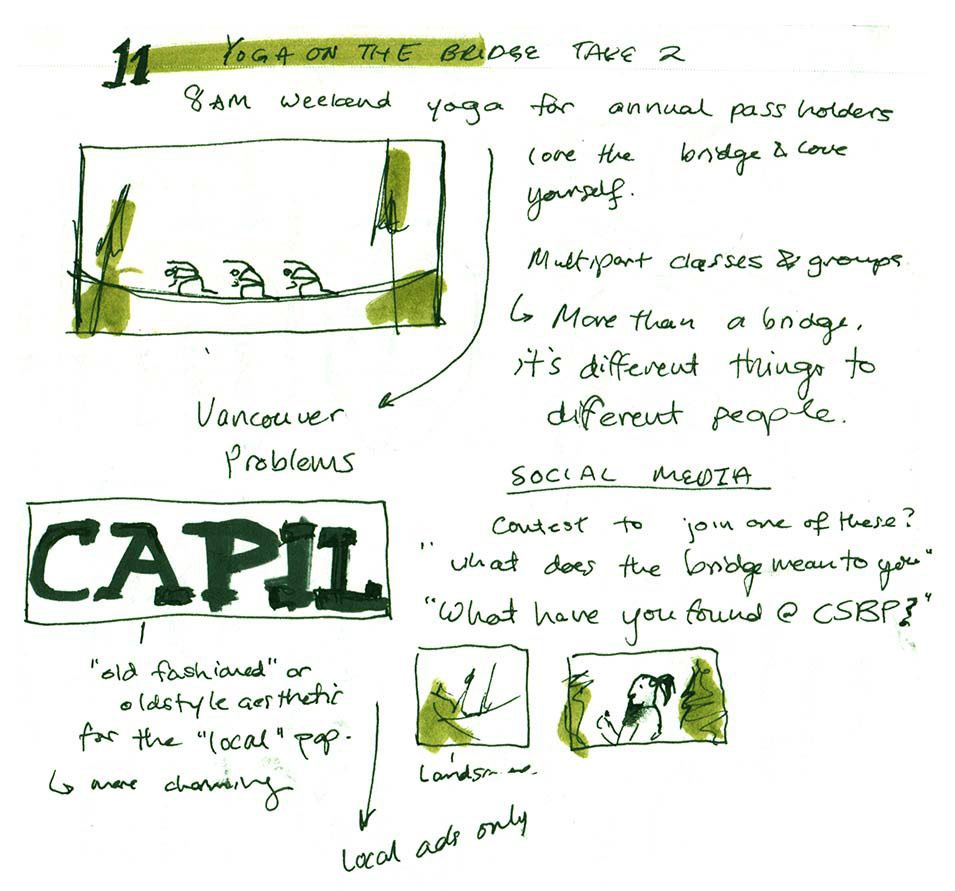 11 YOGA ON THE BRIDGE TAKE 2
8AM weekend yoga for annual pass holders
love the bridge & love
yourself.
Multipart classes & groups
↳ More than a bridge,
it's different things to
different people.
Vancouver
Problems
SOCIAL MEDIA
Contest to join one of these?
"what does the bridge mean to you"
"What have you found @ CSBP?"
CAPIL
"old fashioned" or
oldstyle aesthetic
for the "local" pop.
↳ more charming
Local ads only